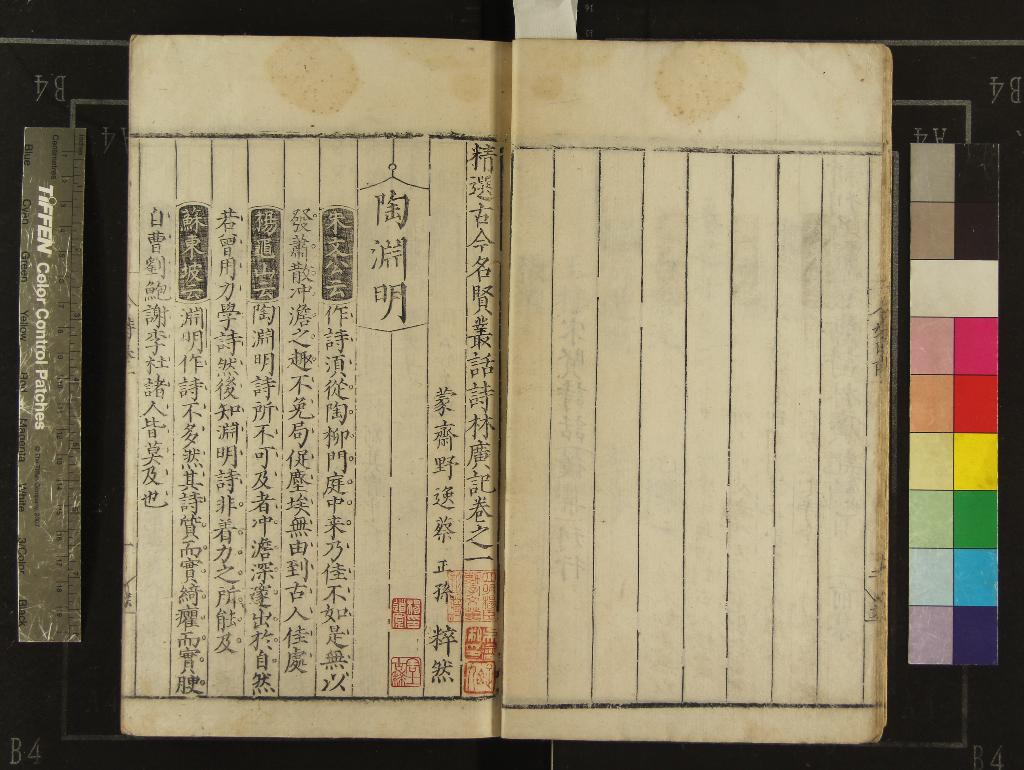 精選古今名賢叢話詩林廣記卷之一
蒙齋野逸蔡 正孫 粹然
陶淵明
朱文公云作詩須從陶柳門庭中来乃佳不如是無以
發蕭散冲澹之趣不免局促塵埃無由到古人佳處
楊龜山云陶淵明詩所不可及者冲澹深邃出於自然
若曾用力學詩然後知淵明詩非着力之所能及
蘇東坡云淵明作詩不多然其詩質而實綺癯而實腴
自曹劉鮑謝李杜諸人皆莫及也
B4
B4
B4
B4
A4
A4
Centimetres
Inches
TIFFEN Color Control Patches
© The Tiffen Company, 2007
Blue
Cyan
Green
Yellow
Red
Magenta
White
3/Color
Black